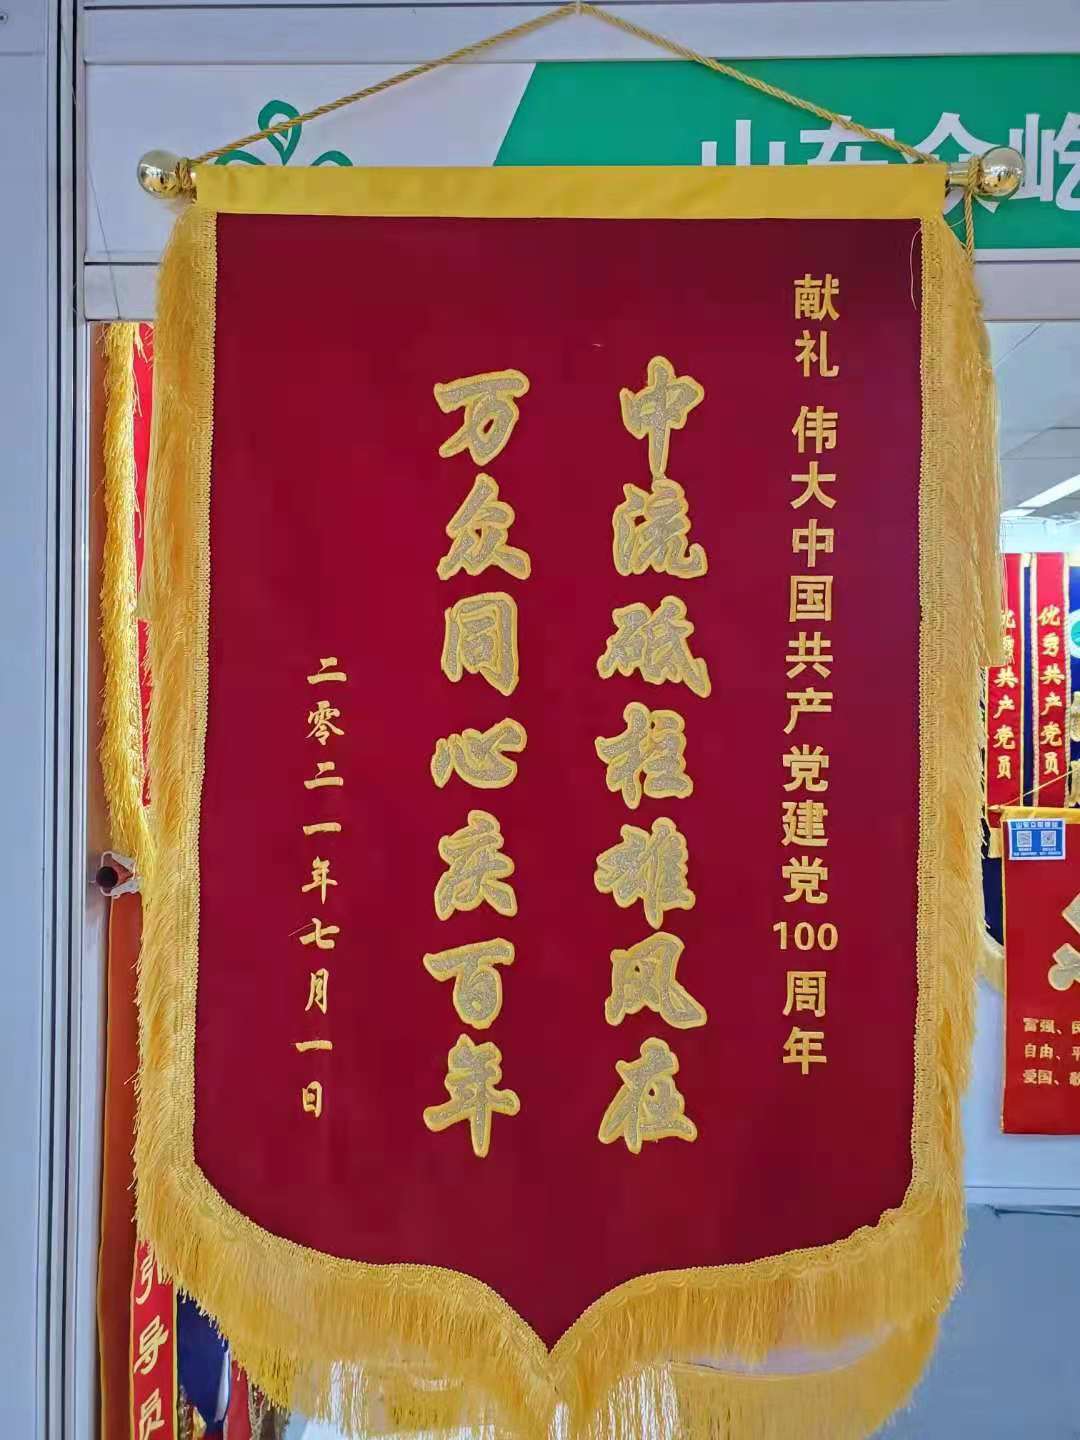 山东众屹
献礼 伟大中国共产党建党100周年
中流砥柱雄风在
万众同心庆百年
二零二一年七月一日
优秀共产党员
优秀共产党员
引导员
富强、民
自由、平
爱国、敬